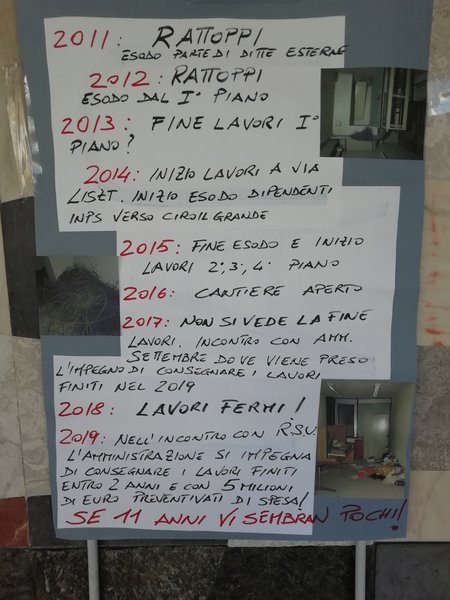 2011: RATTOPPI
ESODO PARTE DI DITTE ESTERNE
2012: RATTOPPI
ESODO DAL I° PIANO
2013: FINE LAVORI I°
PIANO?
2014: INIZIO LAVORI A VIA
LISZT. INIZIO ESODO DIPENDENTI
INPS VERSO CIRO IL GRANDE
2015: FINE ESODO E INIZIO
LAVORI 2°, 3°, 4° PIANO
2016: CANTIERE APERTO
2017: NON SI VEDE LA FINE
LAVORI. INCONTRO CON AMM.
SETTEMBRE DOVE VIENE PRESO
L'IMPEGNO DI CONSEGNARE I LAVORI
FINITI NEL 2019
2018: LAVORI FERMI!
2019: NELL'INCONTRO CON R.S.U.
L'AMMINISTRAZIONE SI IMPEGNA
DI CONSEGNARE I LAVORI FINITI
ENTRO 2 ANNI E CON 5 MILIONI
DI EURO PREVENTIVATI DI SPESA!
SE 11 ANNI VI SEMBRAN POCHI!